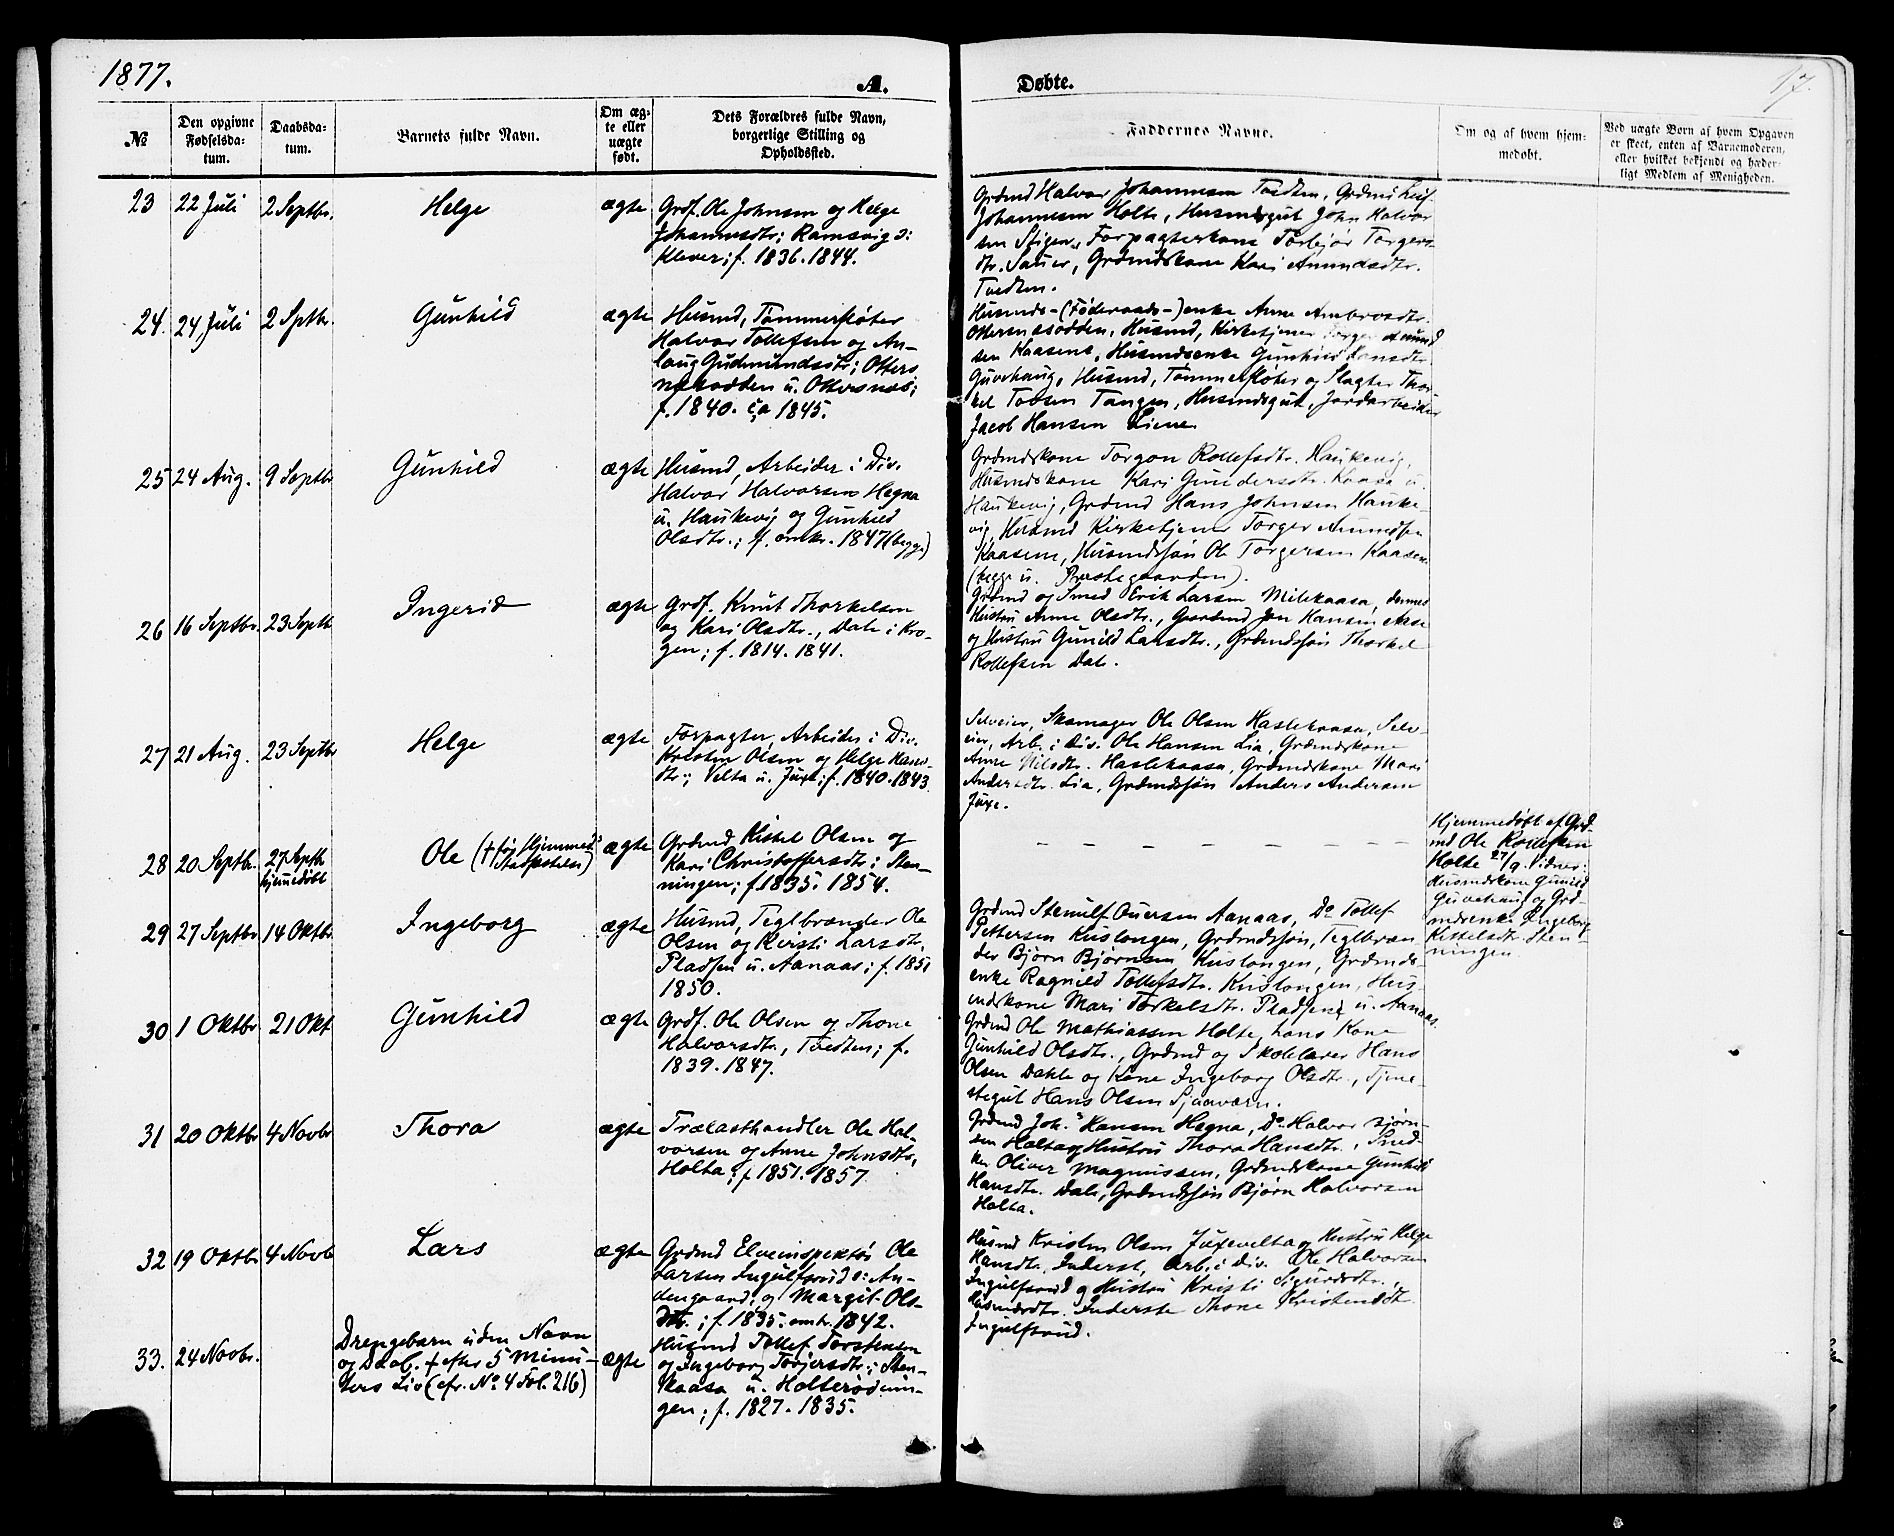 1877.
A.
Døbte.
17.
№
Den opgivne Fødselsda-tum.
Daabsda-tum.
Barnets fulde Navn.
Om æg-te eller uægte født.
Dets Forældres fulde Navn, borgerlige Stilling og Opholdssted.
Faddernes Navne.
Om og af hvem hjem-medøbt.
Ved uægte Børn af hvem Opgaven er skeet, enten af Barnemoderen, eller hvilket bekjendt og hæder-ligt Medlem af Menigheden.
23
22 Juli
2 Septbr.
Helge
ægte
Grdf. Ole Johnsen og Helge
Johannesdtr: Ramsvig o:
Klever; f. 1836. 1844.
Grdmd Halvor Johannesen Tvedten, Grdmd Leif
Johannesen Holte, Husmdsgut John Halvor
sen Stigen, Forpagterkone Torbjør Torgers
dtr. Sauer, Grdmdskone Kari Amundsdtr.
Tvedten.
24.
24 Juli
2 Sptbr.
Gunhild
ægte
Husmd, Tømmerfløter
Halvor Tollefsen og An-
laug Gudmundsdtr; Otters
næsodden u. Ottersnæs;
f. 1840. ca 1845.
Husmds-(Føderaads-)enke Anne Ambrosdtr.
Ottersnæsodden, Husmd, Kirketjener Torger Amund
sen Kaasene, Husmdsenke Gunhild Hansdtr
Guvehaug, Husmd, Tømmerfløter og Slagter Thor
kel Tovsen Tangen, Husmdsgut, Jordarbeider
Jacob Hansen Liene
25
24 Aug.
9 Septbr
Gunhild
ægte
Husmd, Arbeider i Div.
Halvor Halvorsen Hegna
u. Haukevig og Gunhild
Olsdtr.; f. omkr. 1847 (begge)
Grdmdskone Torgon Rollefsdtr. Haukevig,
Husmdskone Kari Gundersdtr. Kaasa u.
Haukevig, Grdmd Hans Johnsen Hauke-
vig, Husmd Kirketjener Torger Amundsen
Kaasene, Husmdssøn Ole Torgersen Kaasene
(begge u. Præstegaarden).
26
16 Septbr.
23 Septb
Ingerid
ægte
Grdf. Knut Thorkelsen
og Kari Olsdtr., Dale i Kro-
gen; f. 1814. 1841.
Grdmd og Smed Erik Larsen Milekaasa, dennes
Hustru Anne Olsdtr., Gaardmd Jon Hansen Aase
og Hustru Gunild Larsdtr., Grdmdssøn Thorkel
Rollefsen Dale.
27
21 Aug.
23 Septbr
Helge
ægte
Forpagter, Arbeider i Div.
Kristen Olsen og Helge Hans-
dtr; Velta u. Juxe; f. 1840. 1843.
Selveier, Skomager Ole Olsen Haslekaasa, Selv-
eier, Arb. i Div. Ole Hansen Lia, Grdmdskone
Anne Nilsdtr. Haslekaasa, Grdmdskone Mari
Andersdtr. Lia, Grdmdssøn Anders Andersen
Juxe.
28
20 Septb.
27 Septb
hjemmedøbt
Ole († før Hjemmed's
Stadfæstelse)
ægte
Grdmd Kittel Olsen og
Kari Christoffersdtr: Sten-
ningen; f. 1835. 1854.
– – – – – – –
Hjemmedøbt af Grd-
md Ole Rollefsen
Holte 27/9. Vidner:
Husmdskone Gunild
Guvehaug og Grd-
mdsenke Ingeborg
Kittelsdtr. Sten-
ningen.
29
27 Septbr
14 Oktbr
Ingeborg
ægte
Husmd, Teglbrænder Ole
Olsen og Kirsti Larsdtr.
Pladsen u. Aanaas; f. 1851
1850.
Grdmd Stenulf Ouersen Aanaas, Do Tollef
Pettersen Kuslongen, Grdmdssøn, Teglbræn
der Bjørn Bjørnsen Kuslongen, Grdmds-
enke Ragnild Tollefsdtr. Kuslongen, Hus-
mdskone Mari Torkelsdtr. Pladsene u. Aanaas.
30
1 Oktbr
21 Okt
Gunhild
ægte
Grdf. Ole Olsen og Thone
Halvorsdtr., Tvedten; f.
1839. 1847.
Grdmd Ole Mathiassen Holte, hans Kone
Gunhild Olsdtr., Grdmd og Skolelærer Hans
Olsen Dahle og Kone Ingeborg Olsdtr., Tjene-
stegut Hans Olsen Sjaaværu.
31
20 Oktbr
4 Novbr
Thora
ægte
Trælasthandler Ole Hal-
vorsen og Anne Johnsdtr,
Holta; f. 1851. 1857
Grdmd Joh. Hansen Hegna, Do Halvor Bjørn-
sen Holta og Hustru Thora Hansdtr., Sned-
ker Oliver Magnussen, Grdmdskone Gunhild
Hansdtr. Dale, Grdmdssøn Bjørn Halvorsen
Holta.
32
19 Oktbr
4 Novb
Lars
ægte
Grdmd Elveinspektør Ole
Larsen Ingulfsrud o: An-
dengaard; og Margit Ols-
dtr.; f. 1835. omtr. 1842.
Husmd Kristen Olsen Juxevelta og Hustru Helge
Hansdtr, Inderst, Arb. i Div. Ole Halvorsen
Ingulfsrud og Hustru Kristi Sigurdsdtr.,
Husmdsdtr. Inderste Thone Kristensdtr.
Ingulfsrud.
33.
24 Novbr.
Drengebarn uden Navn
og Daab. † efter 5 Minu-
ters Liv (cfr. No 4 Fol. 216)
ægte
Husmd Tollef Torstensen
og Ingeborg Torjersdtr.; Sten-
kaasa u. Holterødnin-
gen; f. 1827. 1835.